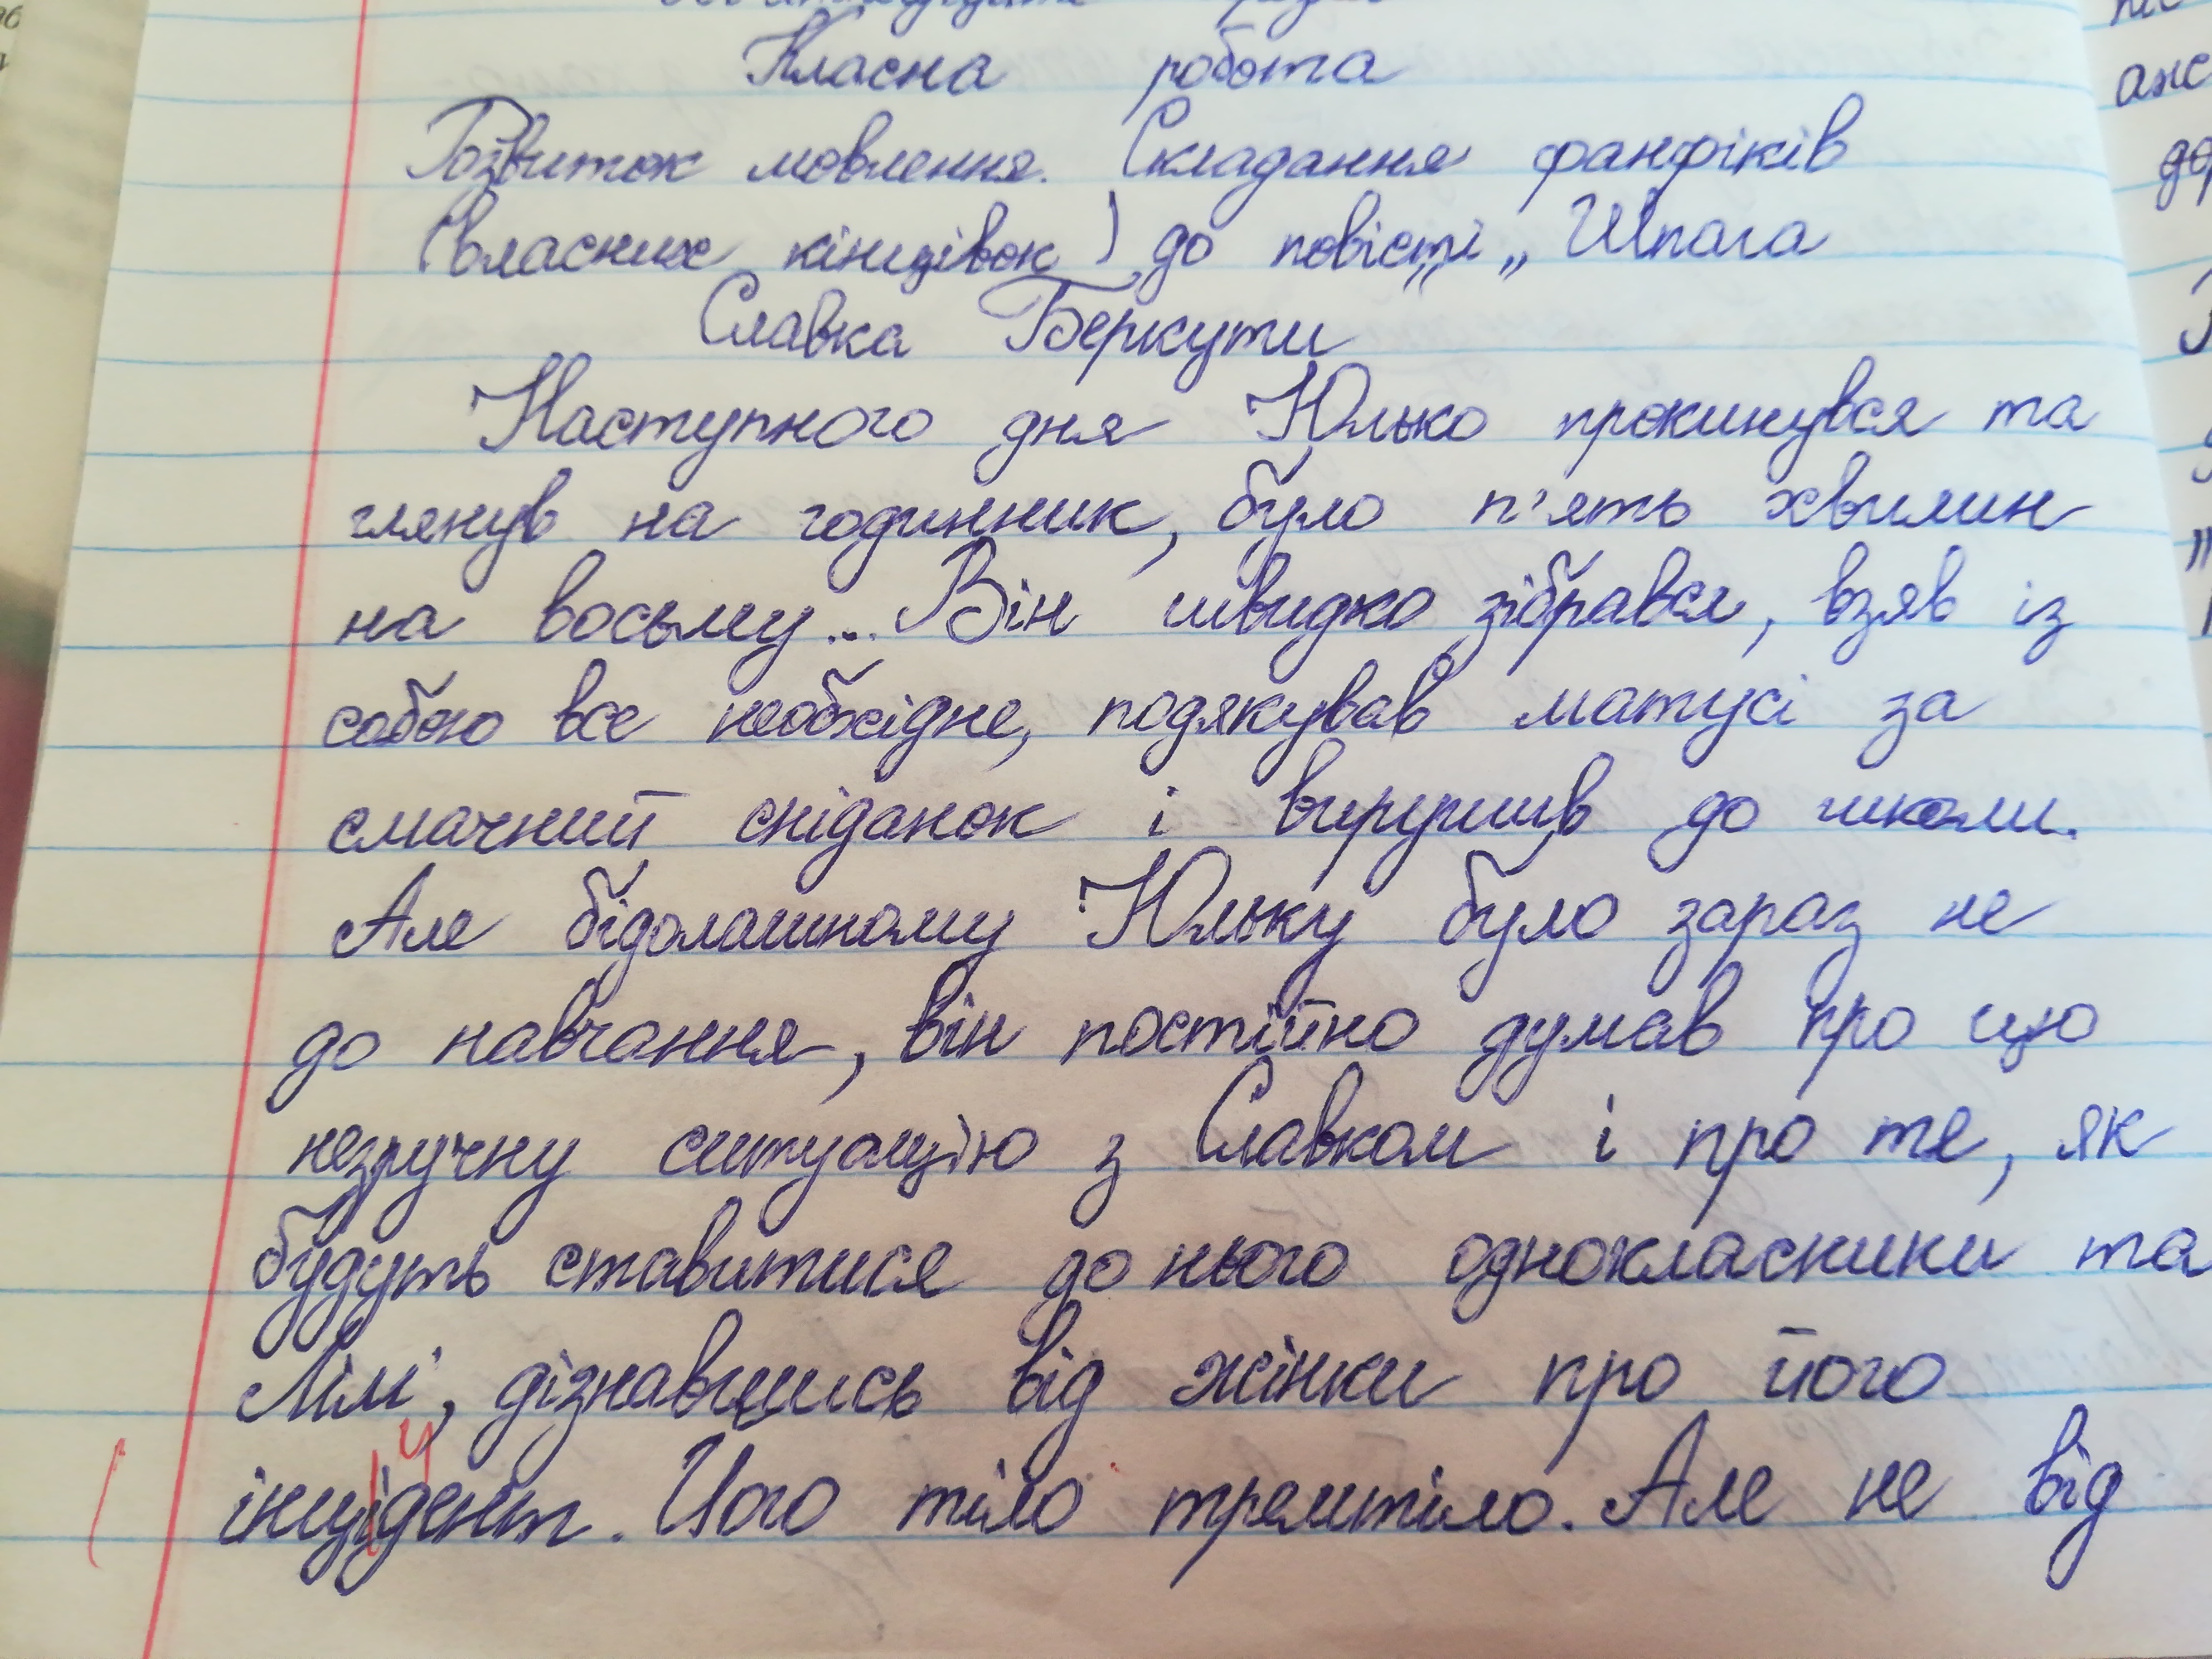 Класна робота
Розвиток мовлення. Складання фанфіків
(власних кінцівок) до повісті „Шпага
Славка Беркути”
Наступного дня Юлько прокинувся та
глянув на годинник, було п'ять хвилин
на восьму... Він швидко зібрався, взяв із
собою все необхідне, подякував матусі за
смачний сніданок і вирушив до школи.
Але бідолашному Юльку було зараз не
до навчання, він постійно думав про цю
незручну ситуацію з Славком і про те, як
будуть ставитися до нього однокласники та
Лілі, дізнавшись від жінки про його
інцидент. Його тіло тремтіло. Але не від